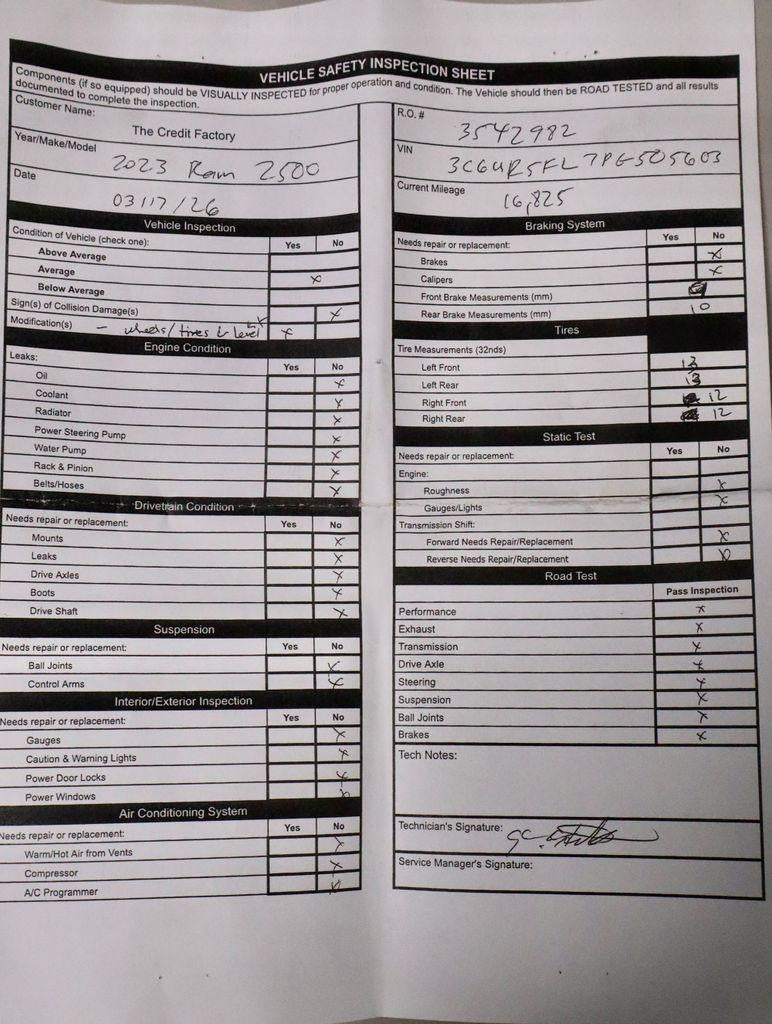 VEHICLE SAFETY INSPECTION SHEET
Components (if so equipped) should be VISUALLY INSPECTED for proper operation and condition. The Vehicle should then be ROAD TESTED and all results
documented to complete the inspection.
Customer Name:
The Credit Factory
Year/Make/Model
2023 Ram 2500
Date
03/17/26
Vehicle Inspection
Condition of Vehicle (check one): Yes No
Above Average
Average x
Below Average
Sign(s) of Collision Damage(s) x
Modification(s) - wheels/tires & level x
Engine Condition
Leaks: Yes No
Oil x
Coolant x
Radiator x
Power Steering Pump x
Water Pump x
Rack & Pinion x
Belts/Hoses x
Drivetrain Condition
Needs repair or replacement: Yes No
Mounts x
Leaks x
Drive Axles x
Boots x
Drive Shaft x
Suspension
Needs repair or replacement: Yes No
Ball Joints x
Control Arms x
Interior/Exterior Inspection
Needs repair or replacement: Yes No
Gauges x
Caution & Warning Lights x
Power Door Locks x
Power Windows x
Air Conditioning System
Needs repair or replacement: Yes No
Warm/Hot Air from Vents x
Compressor x
A/C Programmer x
R.O. #
3542982
VIN
3C6UR5FL7PG505603
Current Mileage
16,825
Braking System
Needs repair or replacement: Yes No
Brakes x
Calipers x
Front Brake Measurements (mm)
Rear Brake Measurements (mm) 10
Tires
Tire Measurements (32nds)
Left Front 13
Left Rear 13
Right Front 12
Right Rear 12
Static Test
Needs repair or replacement: Yes No
Engine:
Roughness x
Gauges/Lights x
Transmission Shift:
Forward Needs Repair/Replacement x
Reverse Needs Repair/Replacement x
Road Test
Pass Inspection
Performance x
Exhaust x
Transmission x
Drive Axle x
Steering x
Suspension x
Ball Joints x
Brakes x
Tech Notes:
Technician's Signature:
Service Manager's Signature: